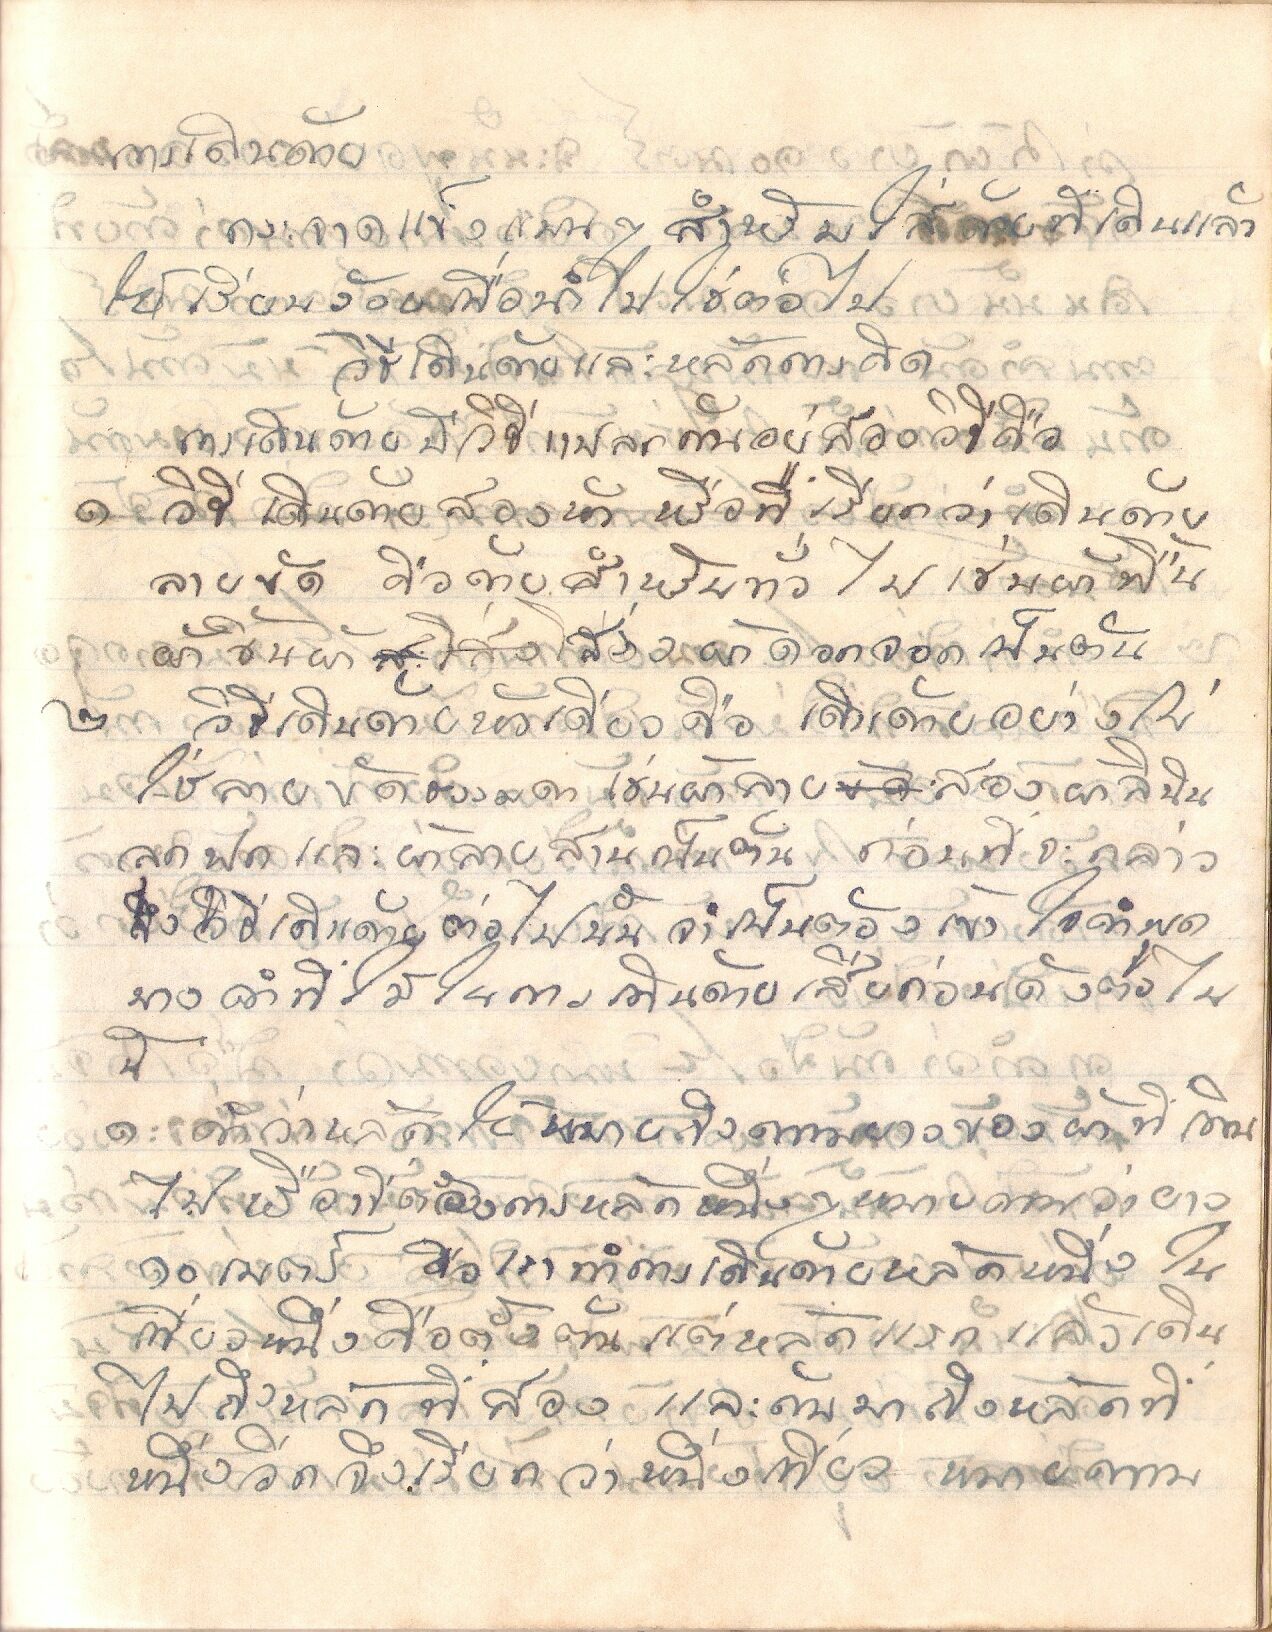 การเดินด้าย
กระจาดแข็งแบนๆ สำหรับใส่ด้ายที่เดินแล้ว
ให้เรียบร้อยเพื่อนำไปใช่ต่อไป
วิธีเดินด้ายและหลักการคิด
การเดินด้ายมีวิธีแปลกกันอยู่สองวิธีคือ
๑ วิธีเดินด้ายสองหัว หรือที่เรียกว่าเดินด้าย
ลายขัด คือด้ายสำหรับทั่วไป เช่นผ้าพื้น
ผ้าซิ่นผ้า โสร่งผ้าดอกจอกเป็นต้น
๒ วิธีเดินด้ายหัวเดี่ยวคือ เดินด้ายอย่างไม่
ใช่ลายขัดธรรมดา เช่นผ้าลายสองผ้าลีนิน
ลูกฟูกและผ้าลายสานเป็นต้น ก่อนที่จะกล่าว
ถึงวิธีเดินด้ายต่อไปนั้น จำเป็นต้องเข้าใจคำพูด
บางคำที่ใช้ในการเดินด้ายเสียก่อนดังต่อไป
นี้
๑. คำว่าหลัก ให้หมายถึงความยาวของผ้าที่เดิน
ไปหรือที่ต้องการหลักหนึ่งๆหมายความว่ายาว
๑๐ เมตร์ คือเราทำการเดินด้ายหลักหนึ่ง ใน
เที่ยวหนึ่งคือตั้งต้นแต่หลักแรกแล้วเดิน
ไปถึงหลักที่สอง และกลับมาถึงหลักที่
หนึ่งอีกจึงเรียกว่าหนึ่งเที่ยว หมายความ